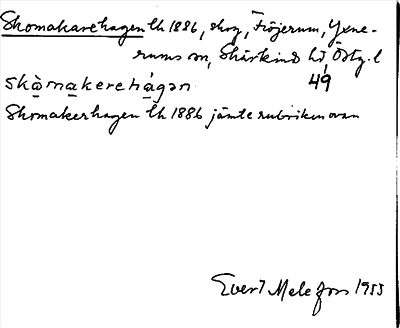 Skomakarehagen lh 1886, skog, Fröjerum, Yxne-
rums sn, Skärkind hd, Östg. l
skò̲ma̲kerehá̲gən 49
Skomakerhagen lh 1886 jämte rubriken ovan
Evert Melefors 1955